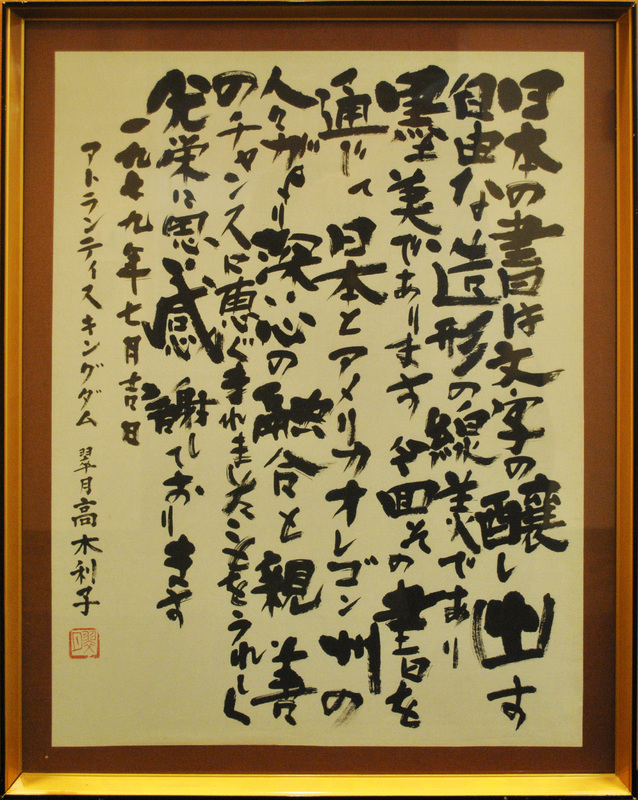 日本の書は文字の醸し出す
自由な造形の線美であり
墨美であります 今回その書を
通じて 日本とアメリカオレゴン州の
人々がより深い心の融合と親善
のチャンスに恵ぐまれましたことをうれしく
光栄に思い感謝しております
一九七九年七月吉日
アトランティスキングダム 翠月高木利子